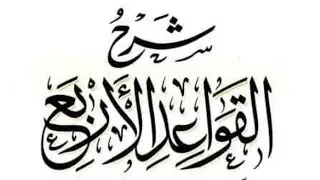 شَرْحُ
القَوَاعِدِ الأَرْبَعِ